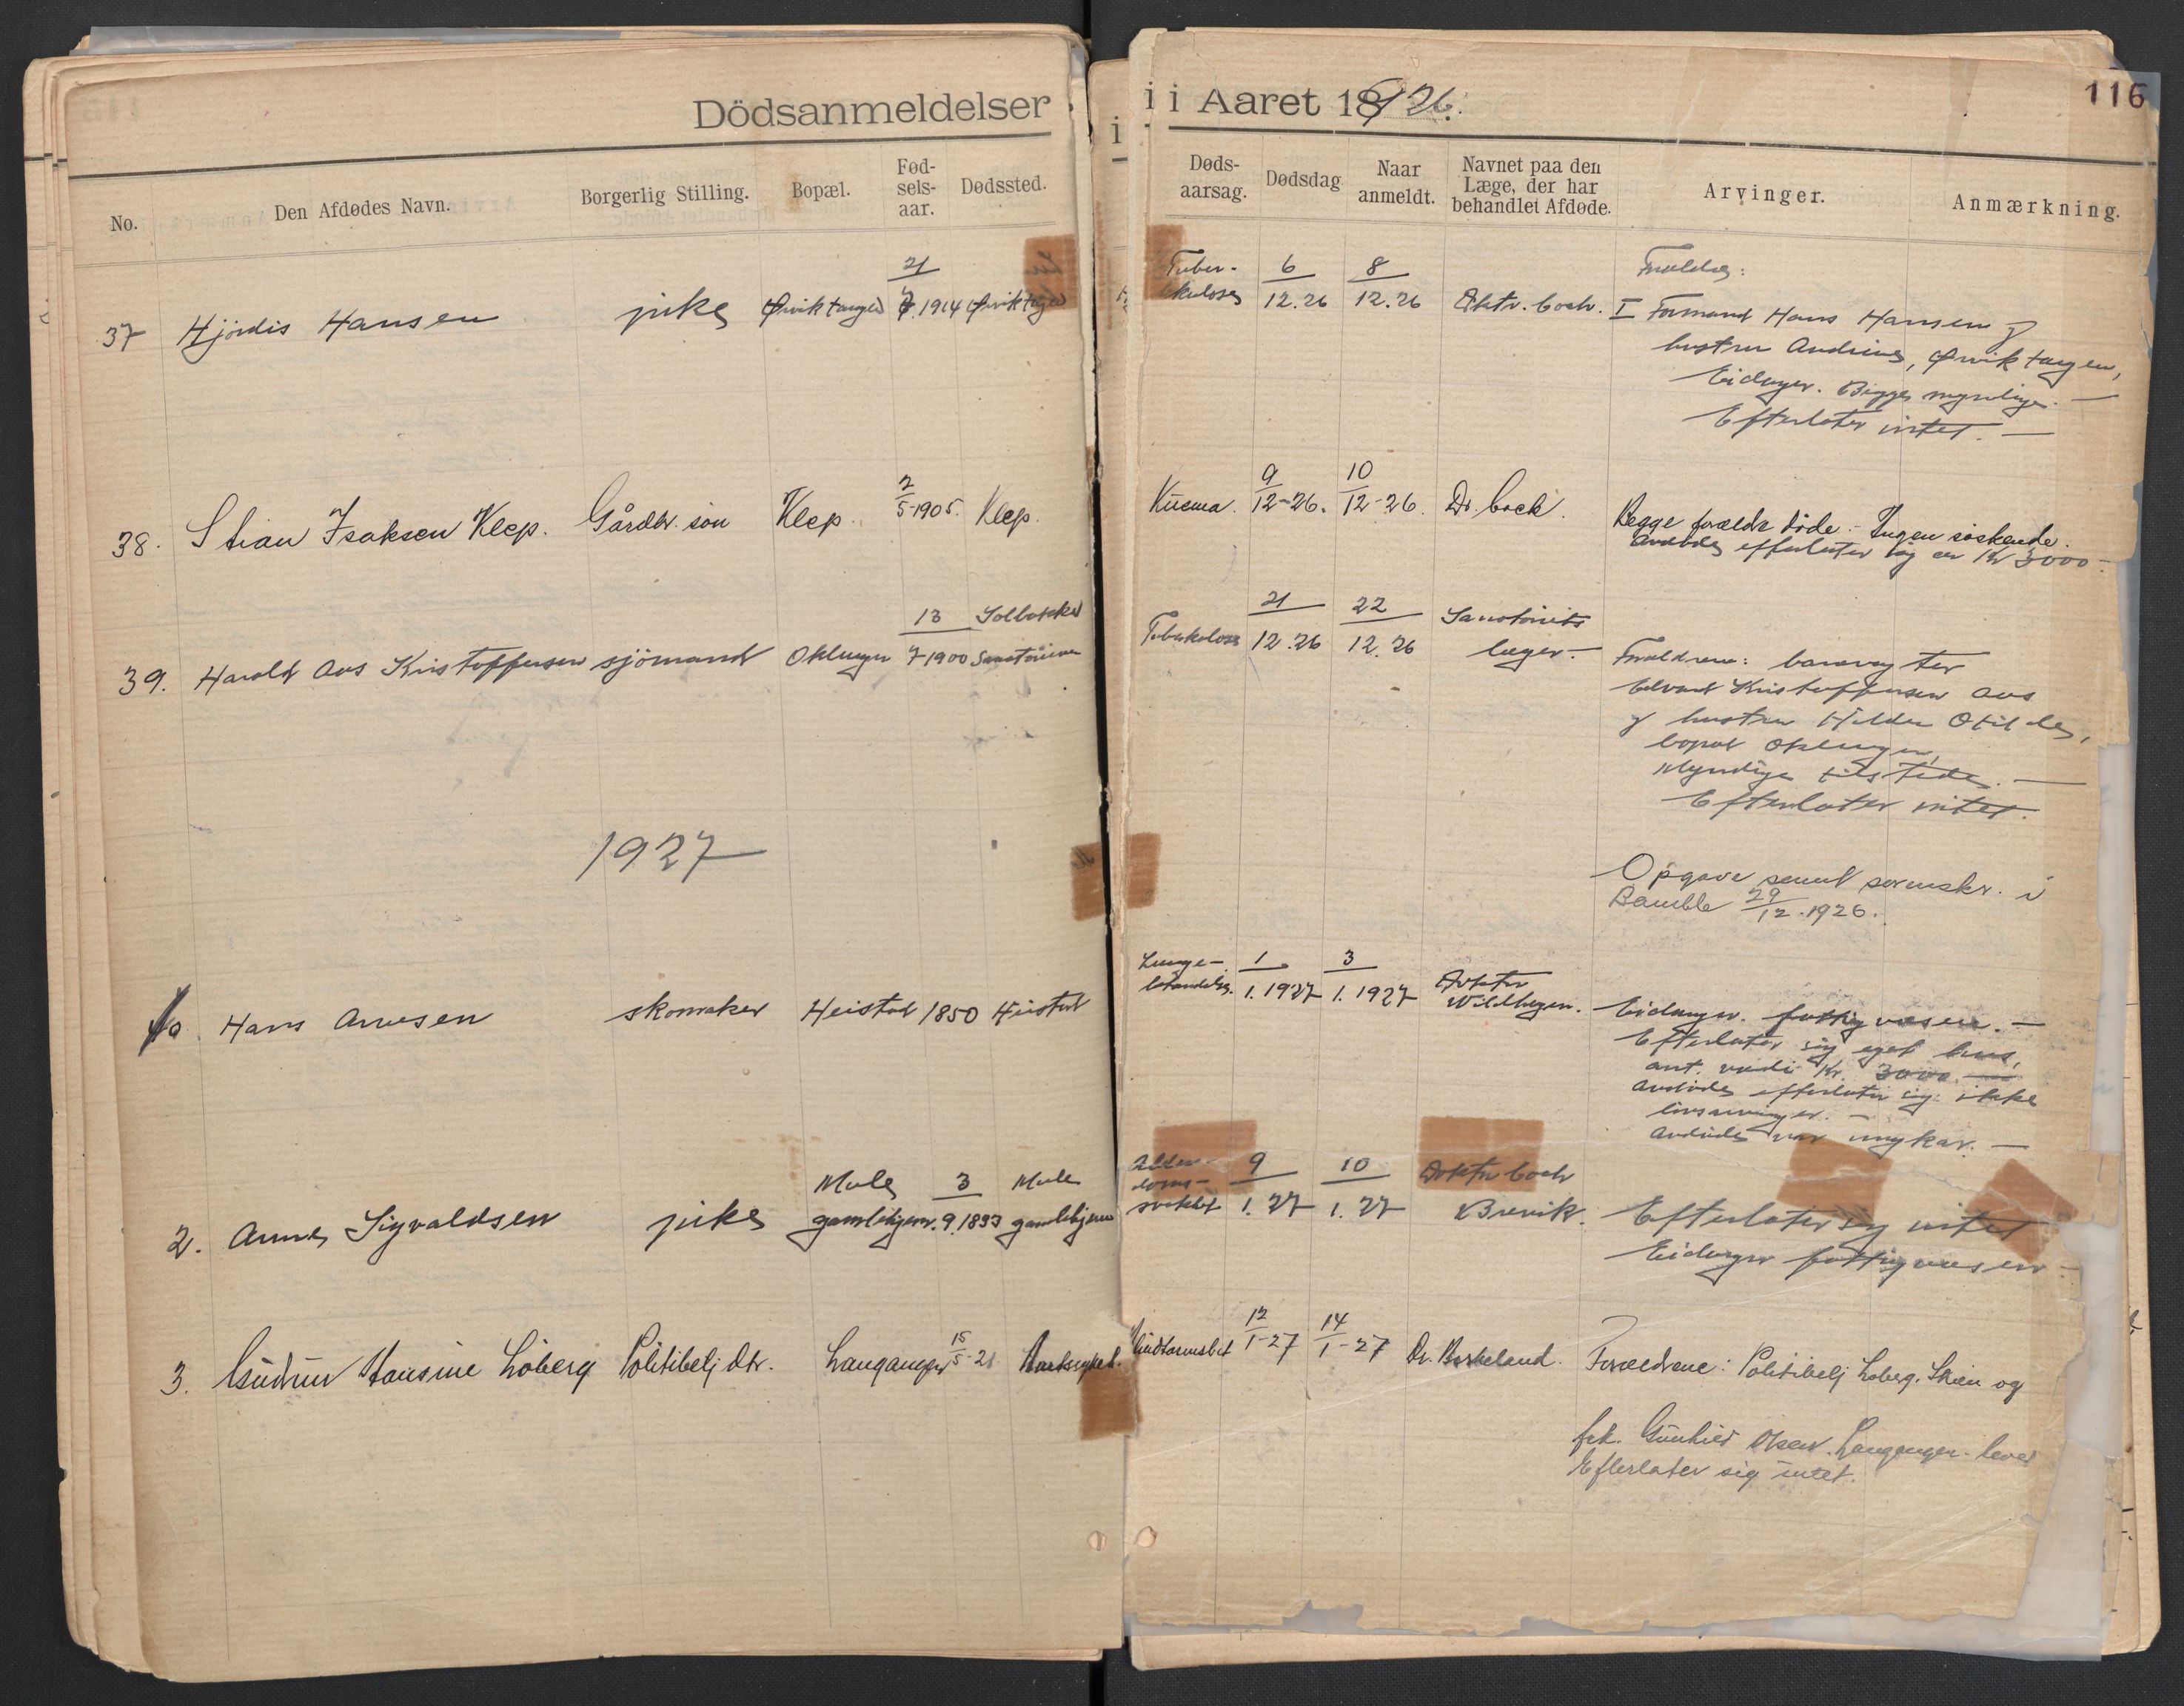 Dödsanmeldelser i i Aaret 18926.
116
No. Den Afdødes Navn. Borgerlig Stilling. Bopæl. Fød-sels-aar. Dødssted. Døds-aarsag. Dødsdag Naar anmeldt. Navnet paa den Læge, der har behandlet Afdøde. Arvinger. Anmærkning.
37 Hjördis Hansen pike Ørviktangen 21/7 1914 Ørviktangen Tuber-kulose 6/12.26 8/12.26 Doktr. Coch. Forældre:
I Formand Hans Hansen &
hustru Andrine, Ørviktangen,
Eidanger. Begge myndige. —
Efterlater intet. —
38. Stian Isaksen Klep. Gårdbr. søn Klep. 2/5-1905. Klep. 9/12-26. 10/12-26. Dr. Cock. Begge forældre døde. - Ingen søskende.
Avdøde efterlater sig ca Kr 3000.-
39. Harald Aas Kristoffersen sjömand Oklungen 13/7 1900 Solbakken Sanatorium Tuberkulose 21/12.26 22/12.26 Sanatoriets læger. — Forældrene: banevogter
Edvard Kristoffersen Aas
& hustru Hilda Otilde,
bopæl Oklungen,
Myndige tilstede. —
Efterlater intet.
1927
Opgave sendt sorenskr. i
Bamble 29/12.1926.
Hans Arnesen skomaker Heistad 1850 Heistad Lunge-betændelse. 1/1.1927 3/1.1927 Doktor Wildhagen. Eidanger. fattigvæsen. —
Efterlater sig eget hus,
ant. verdi Kr. 3000. —
Avdøde efterlater sig ikke
livsarvinger. —
Avdøde var ungkar. —
2. Anne Sigvaldsen pike Mule gamlehjem. 3/9.1833 Mule gamlehjem Alder-doms-svakhet 9/1.27 10/1.27 Doktor Coch Brevik. Efterlater sig intet
Eidanger fattigvæsen —
3. Gudrun Hansine Löberg Politibetj dtr. Langangen 15/5-21 Blindtarmsbet 12/1-27 14/1-27 Dr. Borkeland. Forældrene: Politibetj Löberg. Skien og
frk. Gunhild Olsen. Langangen - lever
Efterlater sig intet.